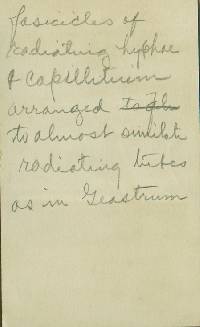 fasicicles of
radiating hyphae
& capillitium
arranged
to almost simulate
radiating tubes
as in Geastrum